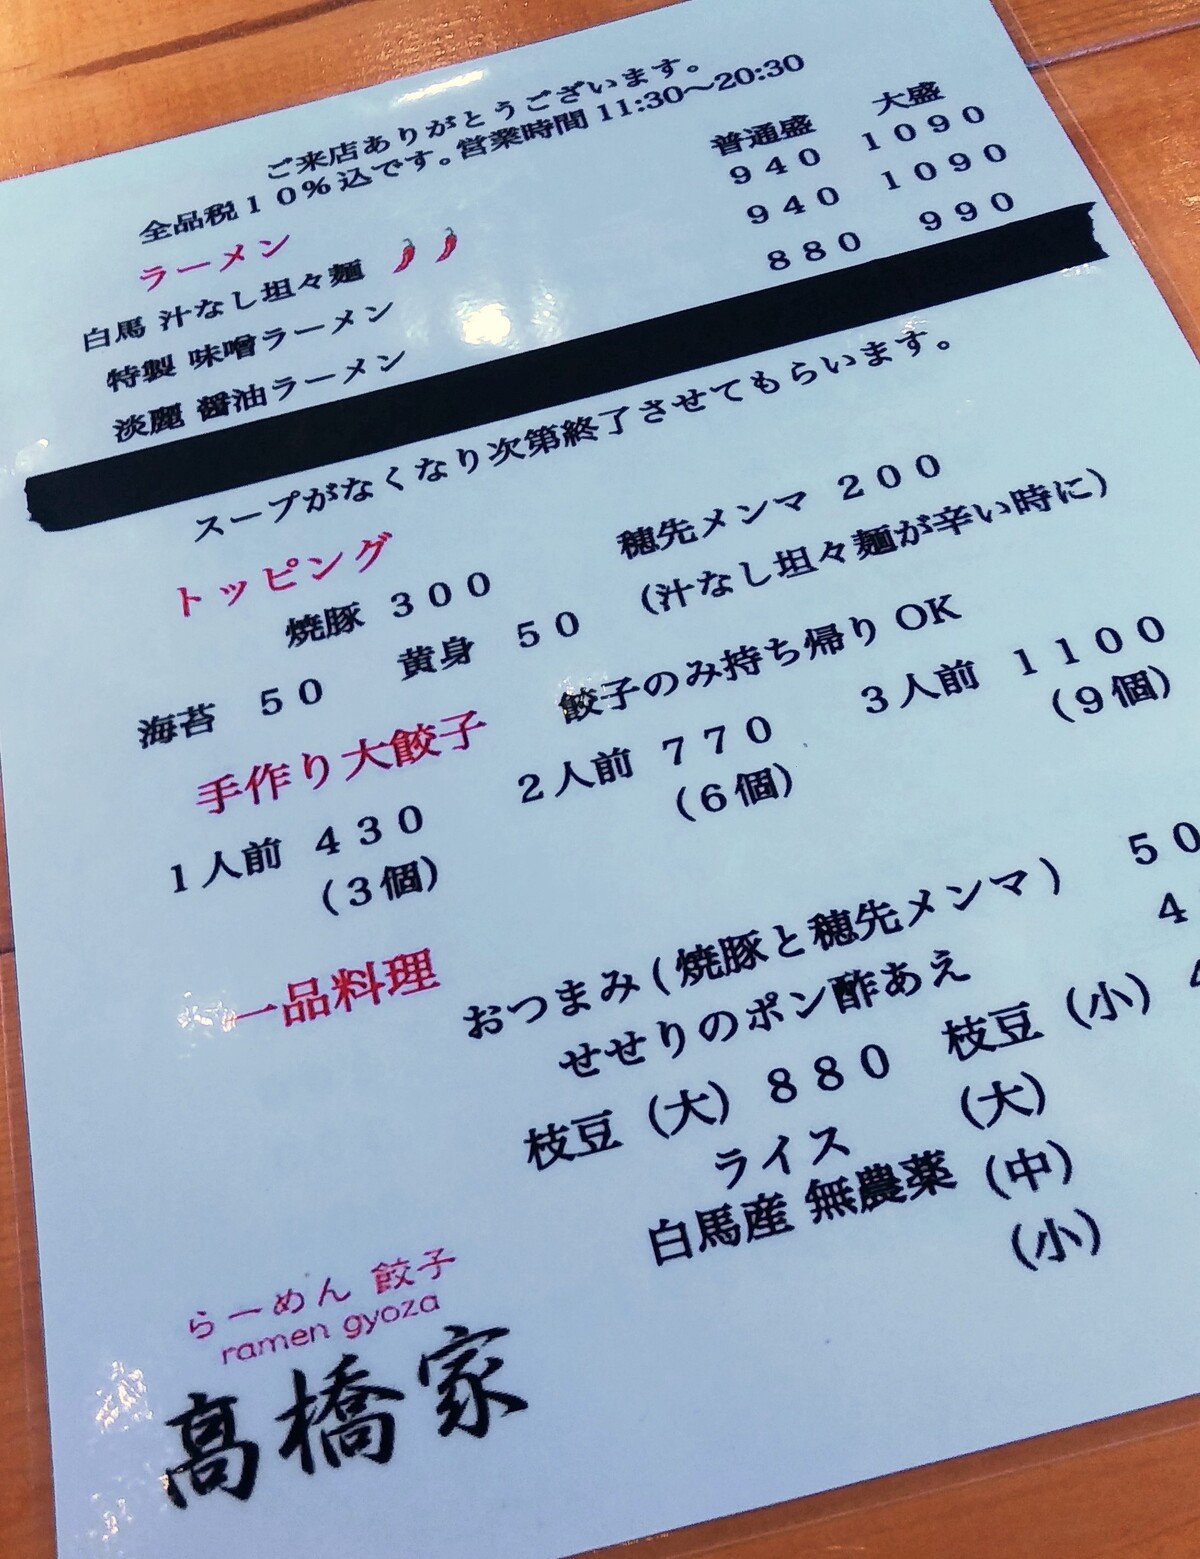 ご来店ありがとうございます。
全品税10%込です。営業時間11:30～20:30
ラーメン 普通盛 大盛
白馬 汁なし坦々麺 940 1090
特製 味噌ラーメン 940 1090
淡麗 醤油ラーメン 880 990
スープがなくなり次第終了させてもらいます。
トッピング 穂先メンマ 200
焼豚 300 (汁なし坦々麺が辛い時に)
海苔 50 黄身 50
手作り大餃子 餃子のみ持ち帰りOK
1人前 430 2人前 770 3人前 1100
(3個) (6個) (9個)
一品料理 おつまみ(焼豚と穂先メンマ) 50
せせりのポン酢あえ 4
枝豆(大) 880 枝豆(小) 4
ライス (大)
白馬産 無農薬 (中)
(小)
らーめん 餃子
ramen gyoza
髙橋家